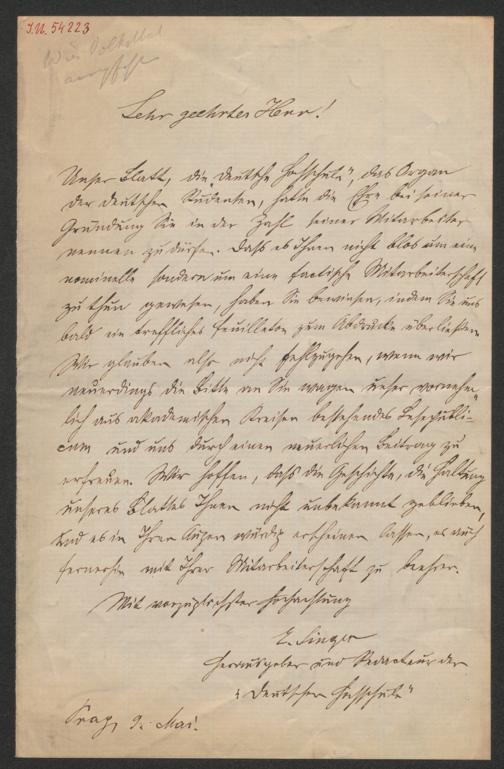 I.N. 54223
Sehr geehrter Herr!
Unser Blatt, die „Deutsche Hochschule“, das Organ
der deutschen Studenten, hatte die Ehre bei seiner
Gründung Sie in der Zahl seiner Mitarbeiter
nennen zu dürfen. Dass es Ihnen nicht blos um eine
nominelle sondern um eine factische Mitarbeiterschaft
zu thun gewesen, haben Sie bewiesen, indem Sie uns
bald ein treffliches Feuilleton zum Abdrucke überließen.
Wir glauben also nicht fehlzugehen, wenn wir
neuerdings die Bitte an Sie wagen unser vornehm-
lich aus akademischen Kreisen bestehendes Lesepubli-
cum und uns durch einen neuerlichen Beitrag zu
erfreuen. Wir hoffen, dass die Geschichte, die Haltung
unseres Blattes Ihnen nicht unbekannt geblieben,
und es in Ihren Augen würdig erscheinen lassen, es auch
fernerhin mit Ihrer Mitarbeiterschaft zu beehren.
Mit vorzüglichster Hochachtung
E. Singer
Herausgeber und Redacteur der
„Deutschen Hochschule“
Prag, 9. Mai.